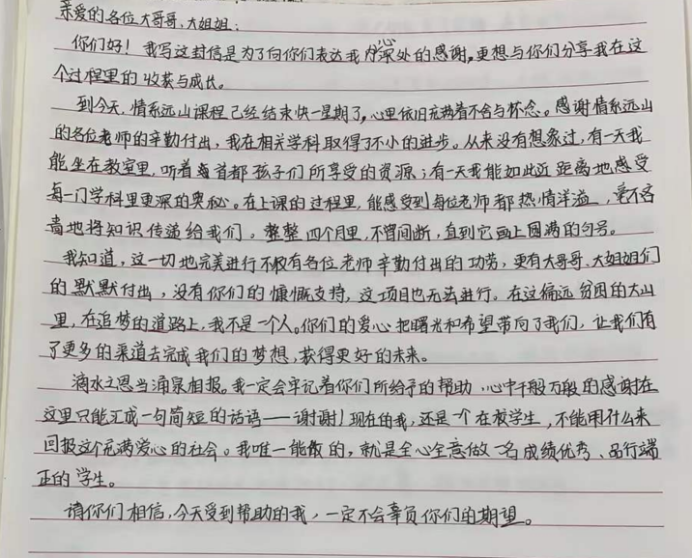 亲爱的各位大哥哥,大姐姐:
你们好!我写这封信是为了向你们表达我内心深处的感谢,更想与你们分享我在这
个过程里的收获与成长。
到今天,情系远山课程已经结束快一星期了,心里依旧充满着不舍与怀念。感谢情系远山
的各位老师的辛勤付出,我在相关学科取得了不小的进步。从来没有想象过,有一天我
能坐在教室里,听着每首都孩子们所享受的资源;有一天我能如此近距离地感受
每一门学科里更深的奥秘。在上课的过程里,能感受到每位老师都热情洋溢,毫不吝
啬地将知识传递给我们。整整四个月里,不曾间断,直到它画上圆满的句号。
我知道,这一切地完美进行不仅有各位老师辛勤付出的功劳,更有大哥哥、大姐姐们
的默默付出,没有你们的慷慨支持,这项目也无法进行。在这偏远贫困的大山
里,在追梦的道路上,我不是一个人。你们的爱心把曙光和希望带向了我们,让我们有
了更多的渠道去完成我们的梦想,获得更好的未来。
滴水之恩当涌泉相报。我一定会牢记着你们所给予的帮助,心中千般万段的感谢在
这里只能汇成一句简短的话语——谢谢!现在的我,还是一个在校学生,不能用什么来
回报这个充满爱心的社会。我唯一能做的,就是全心全意做一名成绩优秀、品行端
正的学生。
请你们相信,今天受到帮助的我,一定不会辜负你们的期望。